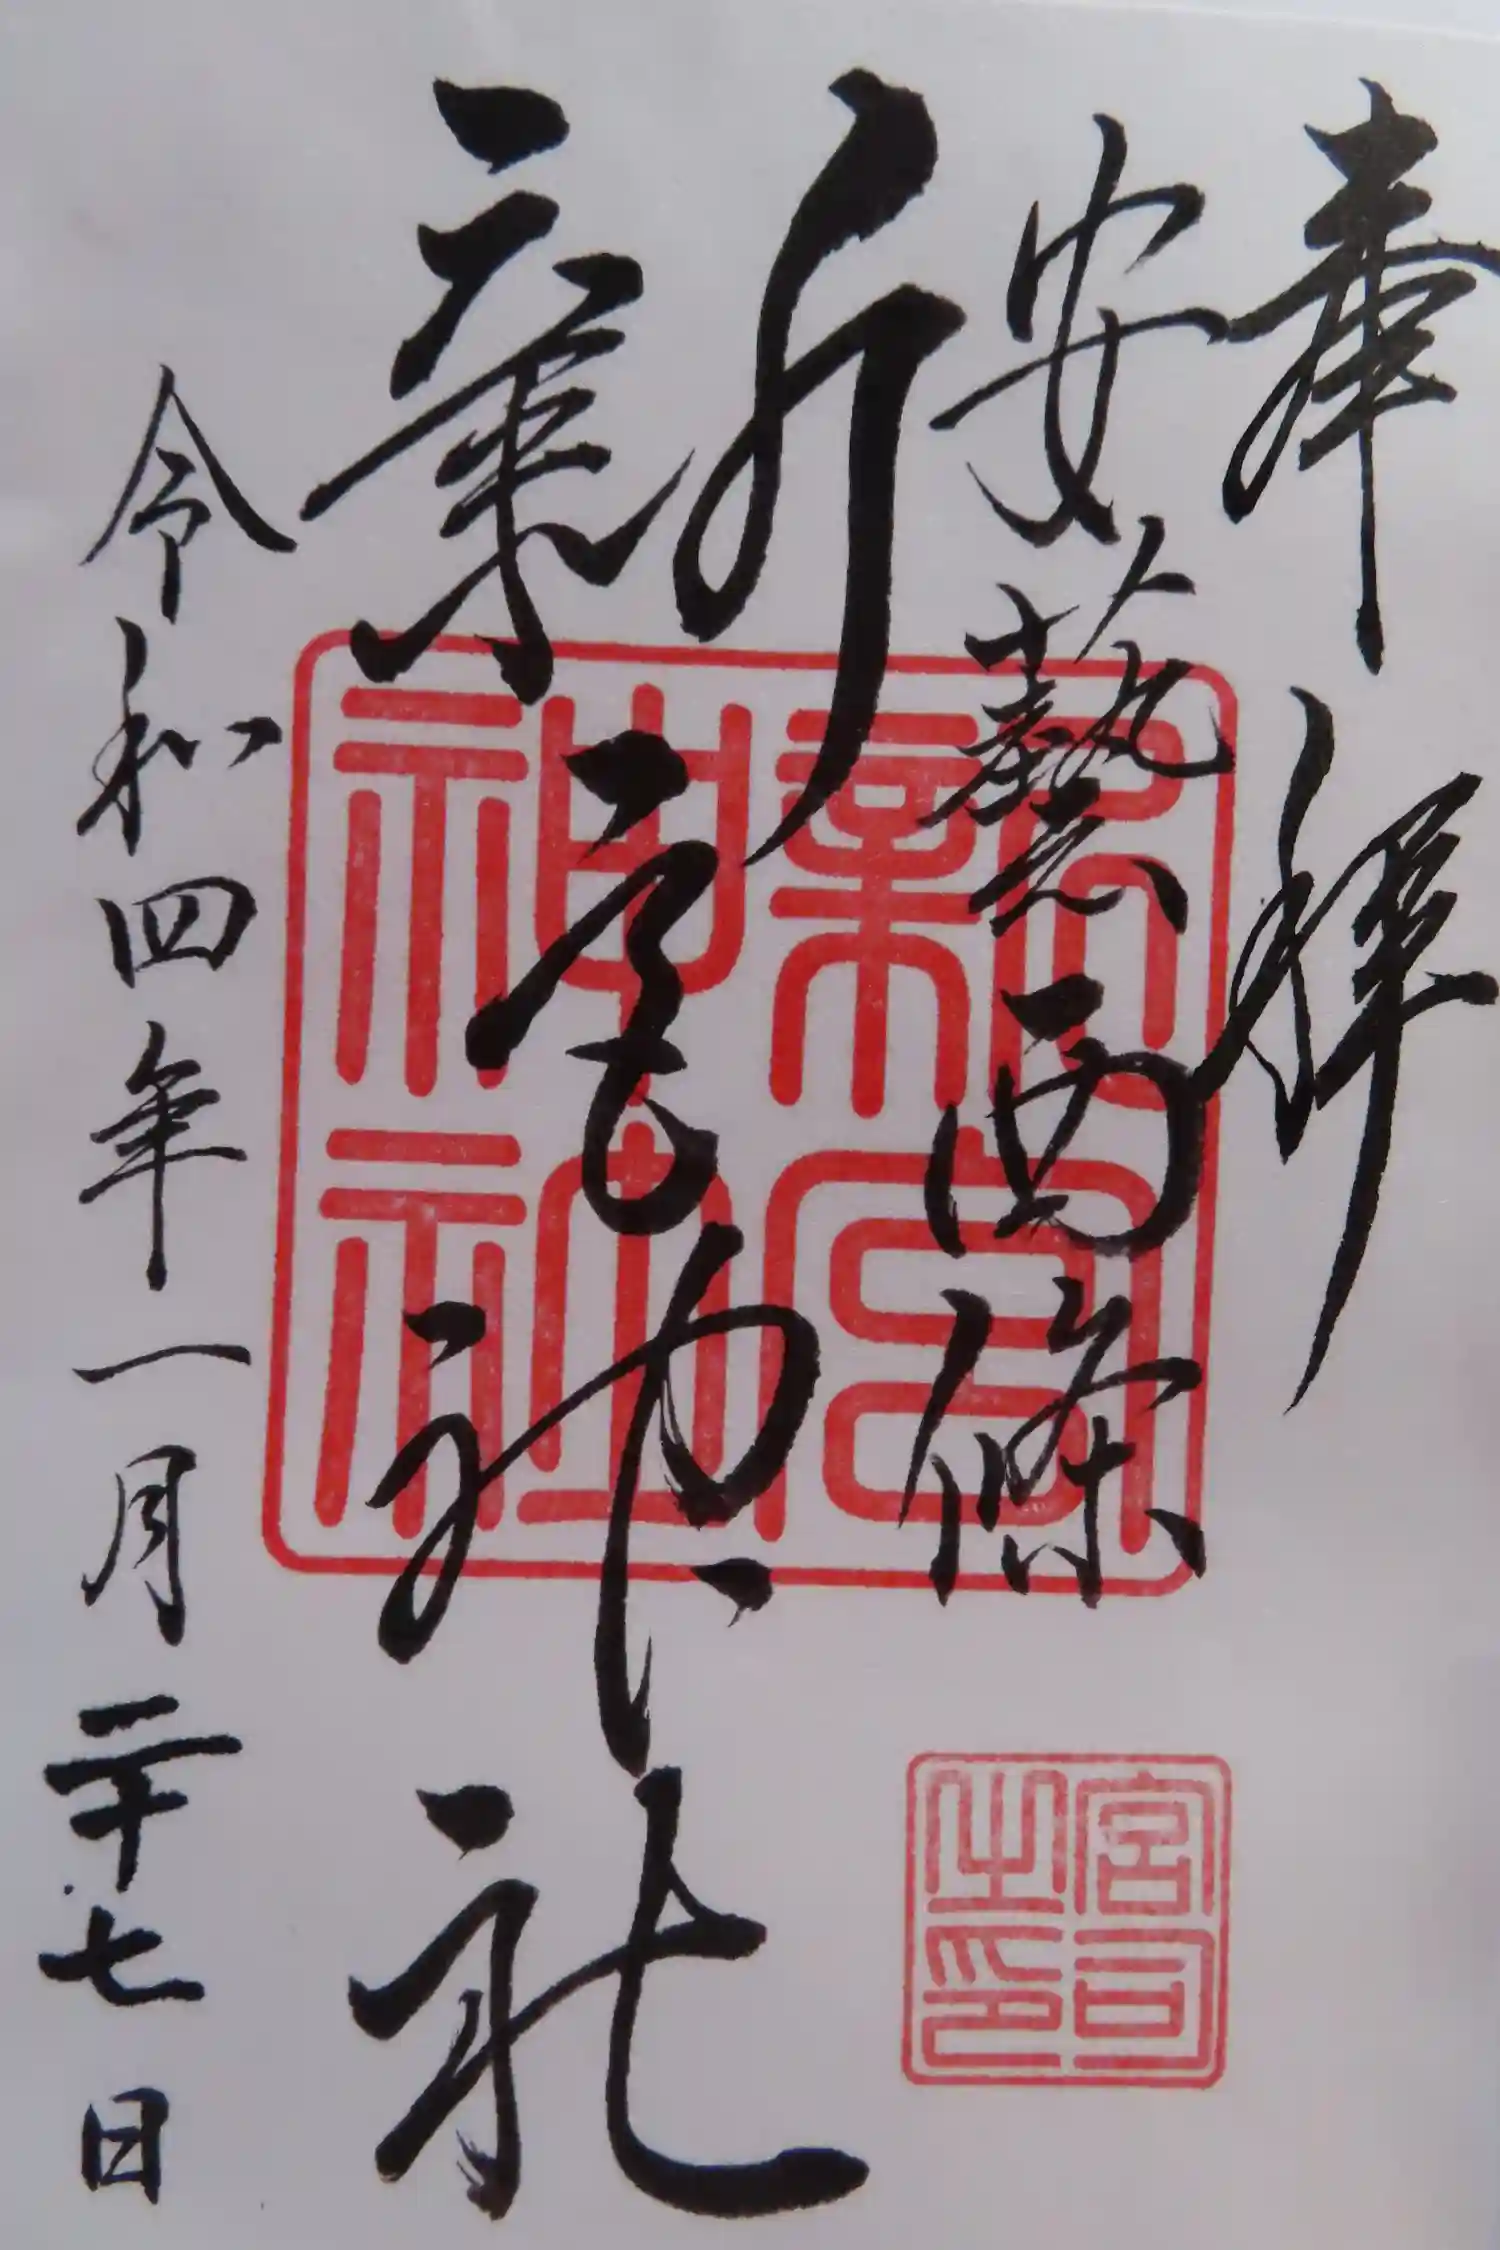 奉拝
安藝西條
新宮神社
令和四年一月二十七日
新宮神社
宮司之印